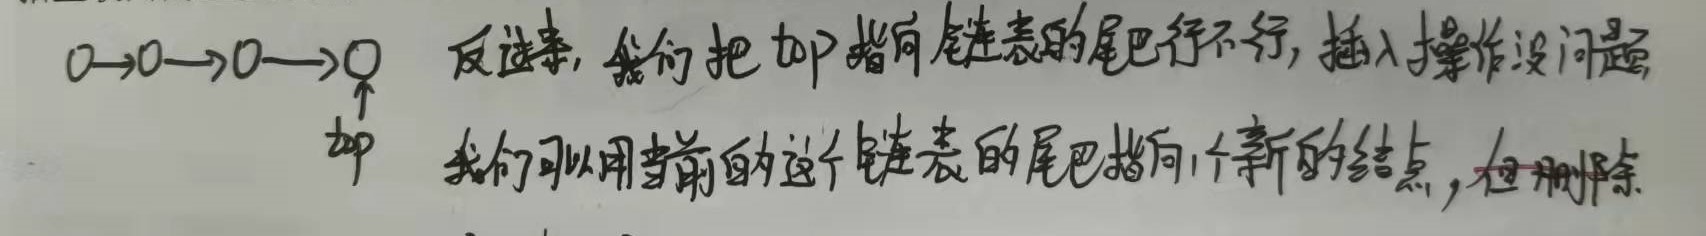 反过来,我们把top指向链表的尾巴行不行,插入操作没问题
top
我们可以用当前的这个链表的尾巴指向1个新的结点,但删除